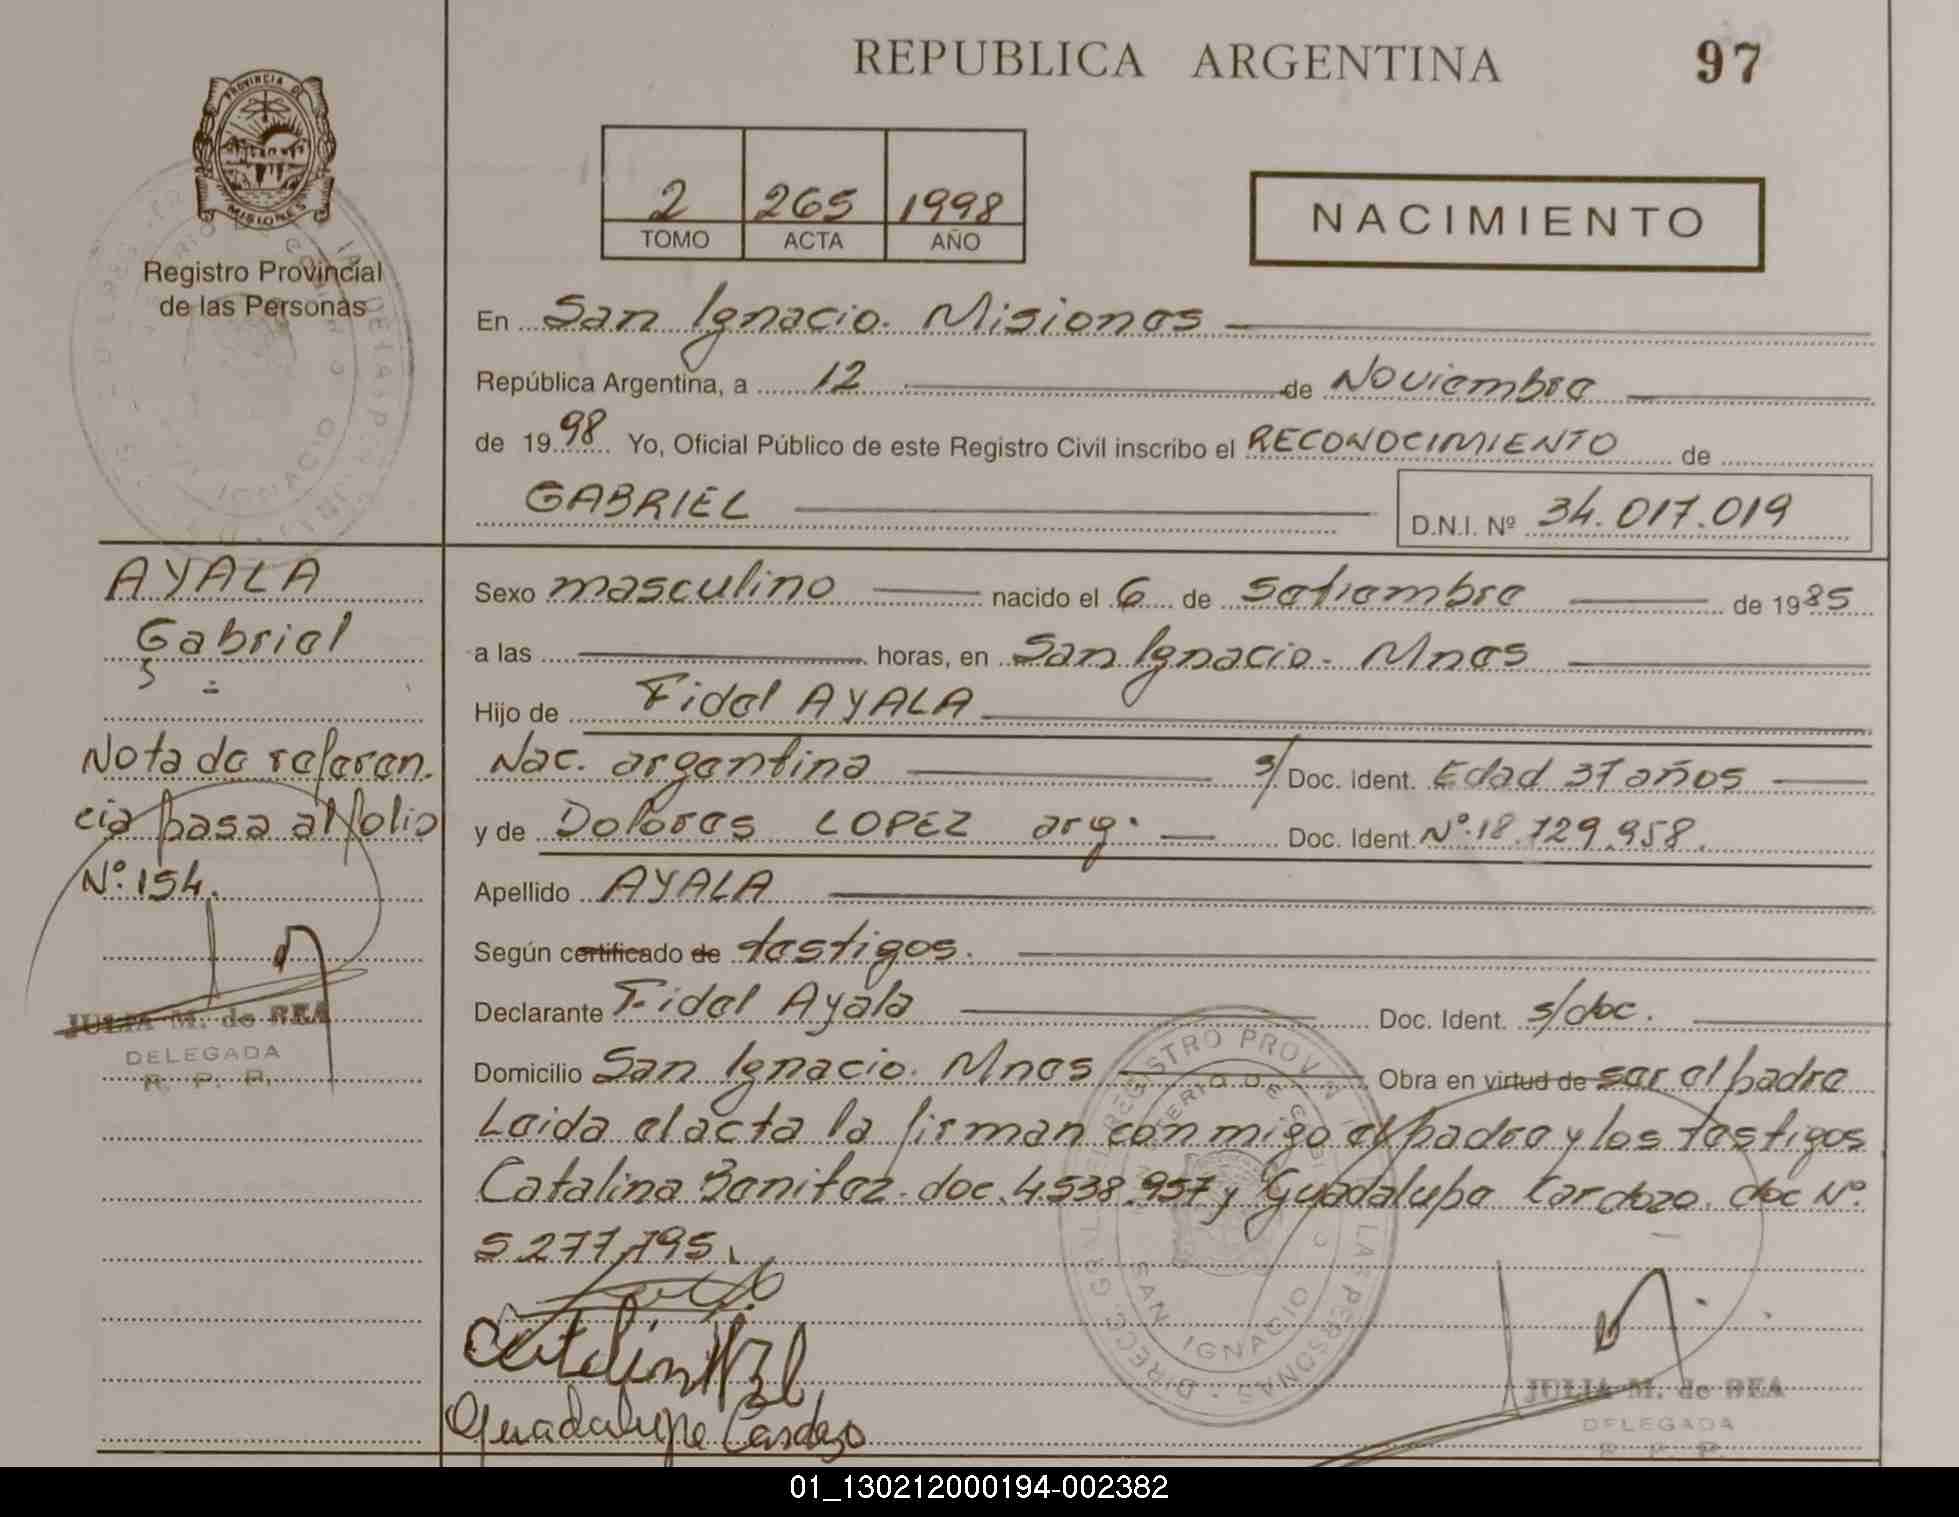 REPUBLICA ARGENTINA 97
PROVINCIA DE
MISIONES
Registro Provincial
de las Personas
2 265 1998
TOMO ACTA AÑO
NACIMIENTO
En San Ignacio. Misiones
República Argentina, a 12 de Noviembre
de 1998 Yo, Oficial Público de este Registro Civil inscribo el RECONOCIMIENTO de
GABRIEL D.N.I. Nº 34.017.019
AYALA
Gabriel
Nota de referen.
cia pasa al folio
Nº. 154.
JULIA M. de REA
DELEGADA
R. P. P.
Sexo masculino nacido el 6 de Setiembre de 1985
a las horas, en San Ignacio - Mnes
Hijo de Fidel AYALA
Nac. argentina s/ Doc. Ident. Edad 37 años
y de Dolores LOPEZ arg. Doc. Ident. Nº. 18.729.958.
Apellido AYALA
Según certificado de testigos.
Declarante Fidel Ayala Doc. Ident. s/doc.
Domicilio San Ignacio. Mnes Obra en virtud de ser el padre
Leida el acta la firman conmigo el padre y los testigos
Catalina Benitez. doc. 4.538.957 y Guadalupe Cardozo. doc Nº.
5.277.795.
Guadalupe Cardozo
DIRECC. GRAL. DEL REGISTRO PROV. DE LAS PERSONAS
SAN IGNACIO
JULIA M. de REA
DELEGADA
R. P. P.
01_130212000194-002382